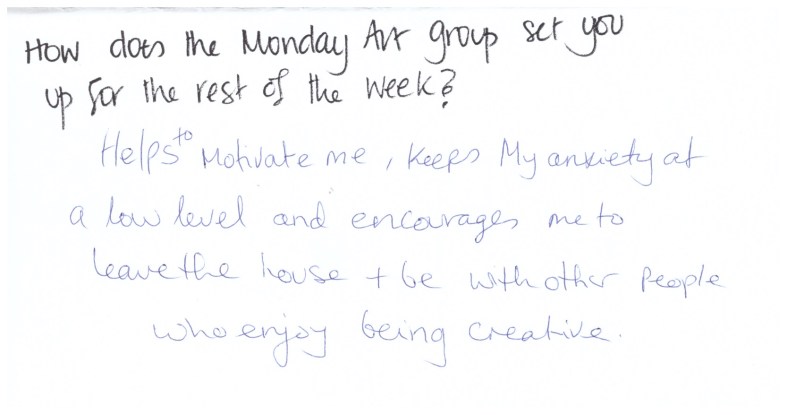 How does the Monday Art group set you
up for the rest of the week?
Helps to Motivate me, Keeps My anxiety at
a low level and encourages me to
leave the house + be with other People
who enjoy being creative.